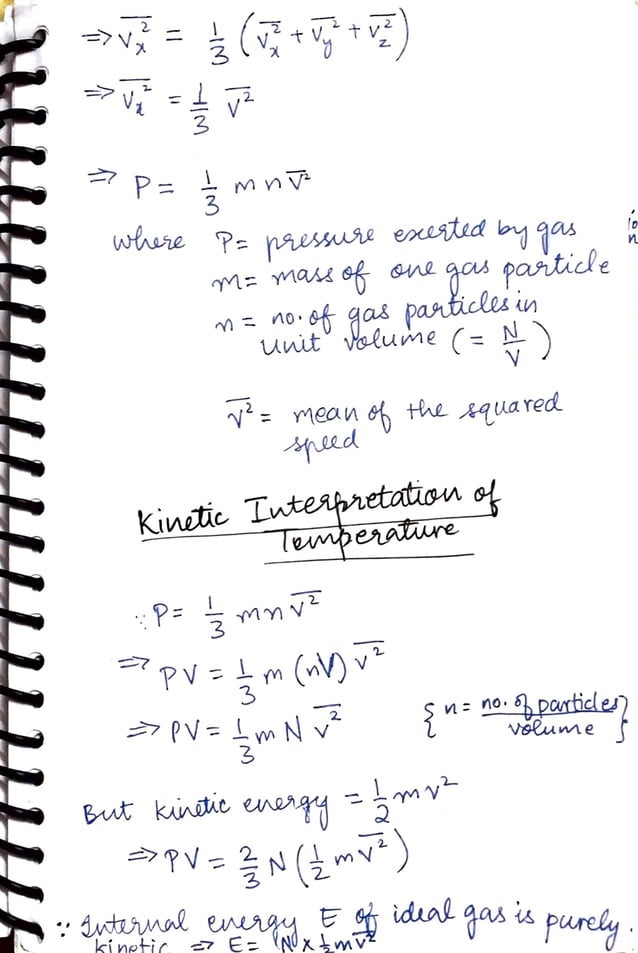 ⇒ $\overline{v_x^2}$ = $\frac{1}{3}$ ($\overline{v_x^2}$ + $\overline{v_y^2}$ + $\overline{v_z^2}$)
⇒ $\overline{v_x^2}$ = $\frac{1}{3}$ $\overline{v^2}$
⇒ P = $\frac{1}{3}$ m n $\overline{v^2}$
where P = pressure exerted by gas
m = mass of one gas particle
n = no. of gas particles in
unit volume (= $\frac{N}{V}$)
$\overline{v^2}$ = mean of the squared
speed
Kinetic Interpretation of
Temperature
∵ P = $\frac{1}{3}$ m n $\overline{v^2}$
⇒ PV = $\frac{1}{3}$ m (nV) $\overline{v^2}$
⇒ PV = $\frac{1}{3}$ m N $\overline{v^2}$ {n = $\frac{\text{no. of particles}}{\text{volume}}$}
But kinetic energy = $\frac{1}{2}$ m v²
⇒ PV = $\frac{2}{3}$ N ($\frac{1}{2}$ m $\overline{v^2}$)
∵ Internal energy E of ideal gas is purely.
kinetic ⇒ E = N × $\frac{1}{2}$ m $\overline{v^2}$